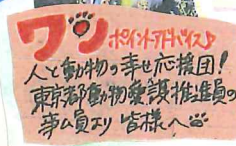 ワン
ポイントアドバイス♪
人と動物の幸せ応援団!
東京都動物愛護推進員の
事ム員より 皆様へ